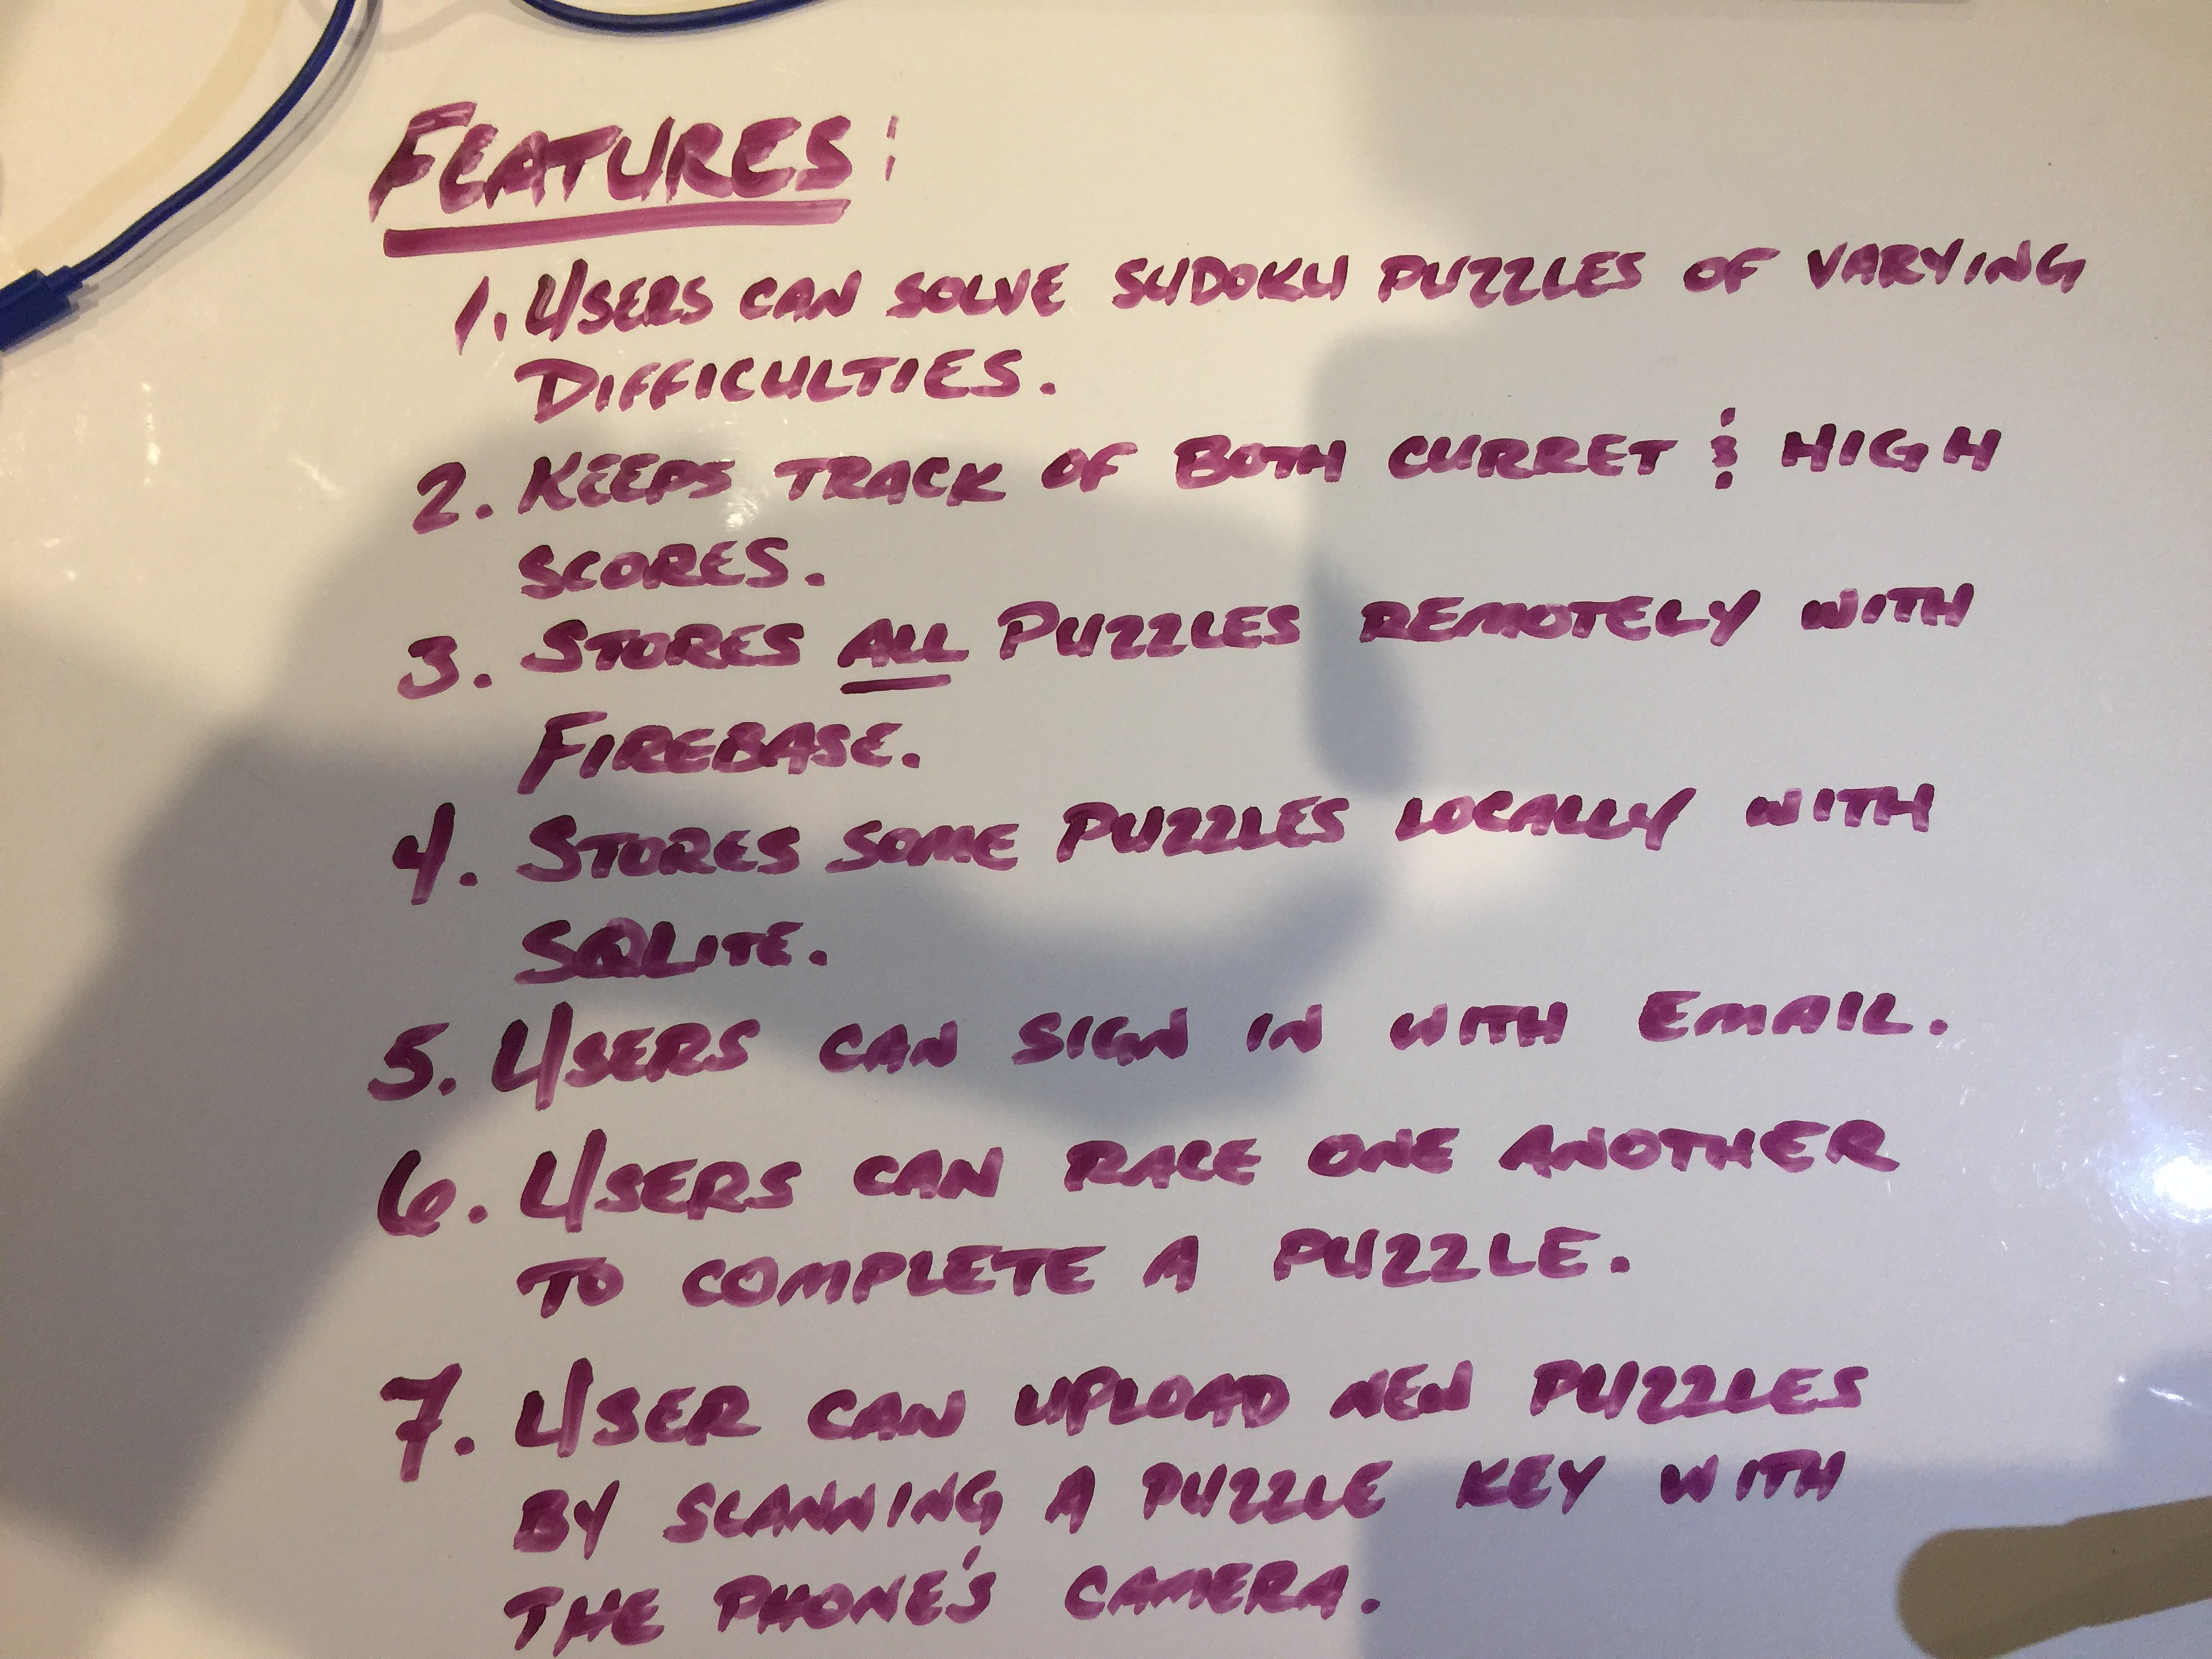 FEATURES:
1. USERS CAN SOLVE SUDOKU PUZZLES OF VARYING
DIFFICULTIES.
2. KEEPS TRACK OF BOTH CURRET & HIGH
SCORES.
3. STORES ALL PUZZLES REMOTELY WITH
FIREBASE.
4. STORES SOME PUZZLES LOCALLY WITH
SQLITE.
5. USERS CAN SIGN IN WITH EMAIL.
6. USERS CAN RACE ONE ANOTHER
TO COMPLETE A PUZZLE.
7. USER CAN UPLOAD NEW PUZZLES
BY SCANNING A PUZZLE KEY WITH
THE PHONE'S CAMERA.